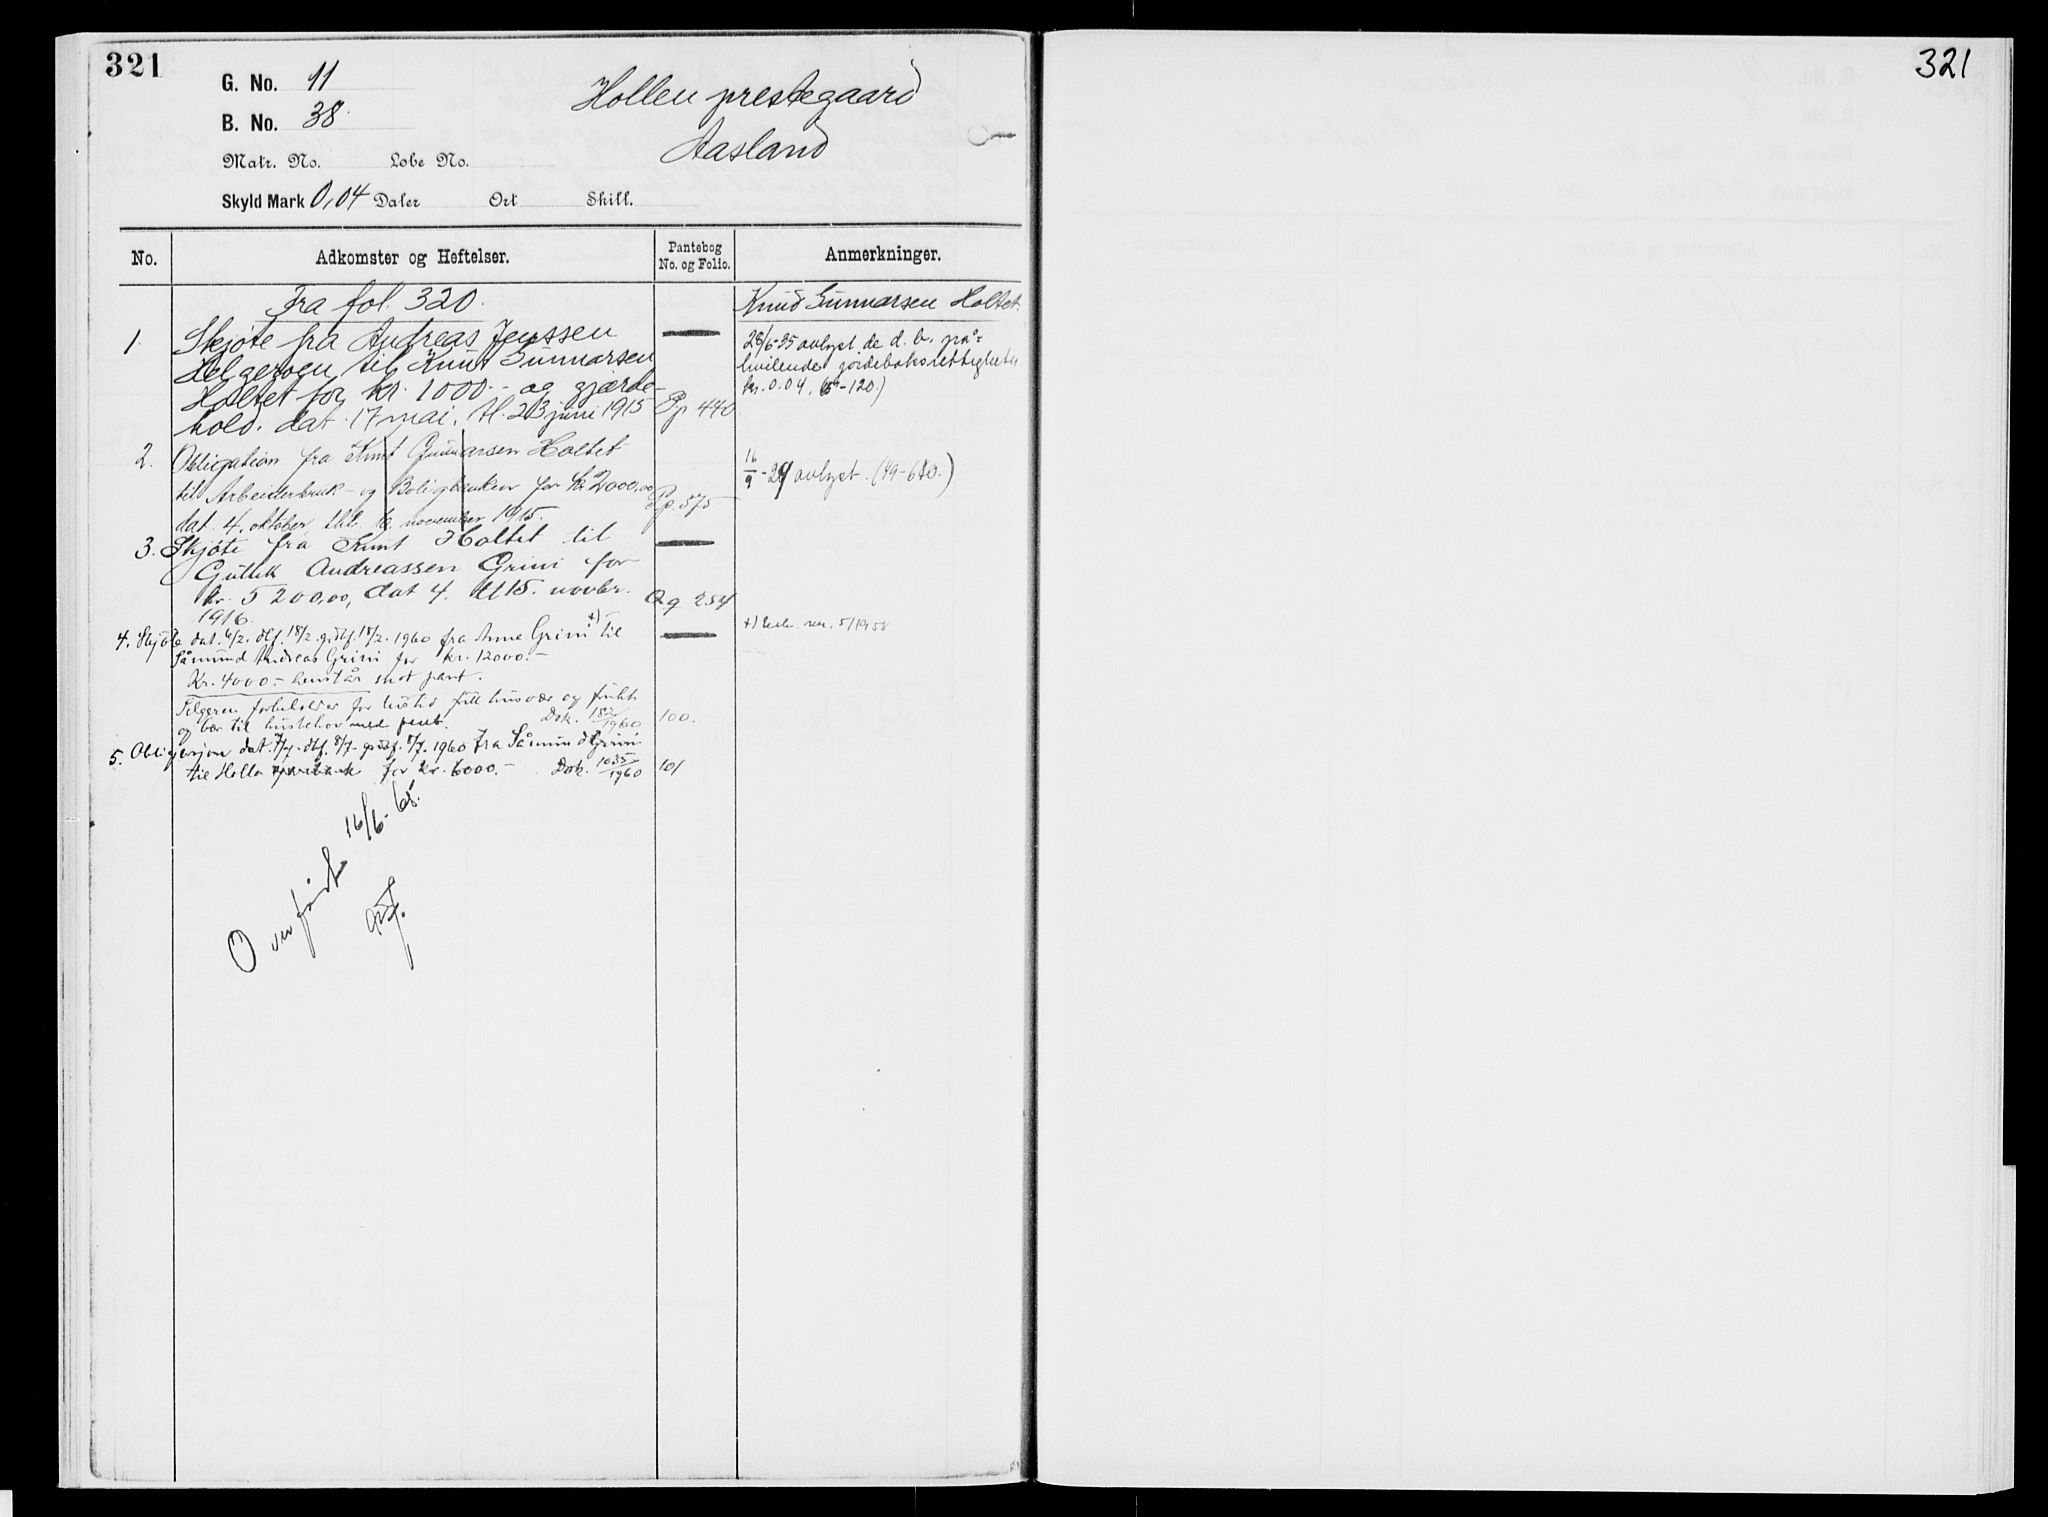 321
G. No. 11
Hollen prestegaard
B. No. 38
Aasland
Matr. No. Løbe No.
Skyld Mark 0,04 Daler Ort Skill.
No. Adkomster og Heftelser. Pantebog No. og Folio. Anmerkninger.
Fra fol. 320.
Knud Gunnarsen Holtet.
1. Skjøte fra Andreas Jenssen
Helgeroen til Knut Gunnarsen
Holtet for kr. 1000.- og gjærde-
hold. dat. 17 mai. tl. 23 juni 1915 Pp 440
28/6-35 avlyst de d. b. på=
hvilende jordebaksrettigheter
kr. 0.04. -120.)
2. Obligation fra Knut Gunnarsen Holtet
til Arbeiderbruk- og Boligbanken for kr 2000,00
dat. 4. oktober thl. november 1915. Pp. 575
16/9 - 29 avlyst. (49-610.)
3. Skjøte fra Knut Holtet til
Gullik Andreassen Grini for
kr. 5 200,00, dat 4. tl 15. novbr.
1916. Qq 254
4. Skjøte dat. 6/2. dbf. 18/2. grdbf. 18/2. 1960 fra Anne Grini +) til
Såmund Andreas Grini for kr. 12000.-
Kr. 4000.- henstår mot pant.
Selgeren forbeholder for livstid fritt husvær og frukt
og bær til husbehov med pant. Dok. 182/1960 100.
+) 5/1958
5. Obligasjon dat. 7/7. dbf. 8/7. grdbf. 8/7. 1960 fra Såmund A Grini
til Holla sparebank for kr. 6000.- Dok. 1035/1960 101
Overført 16/6-65.
321